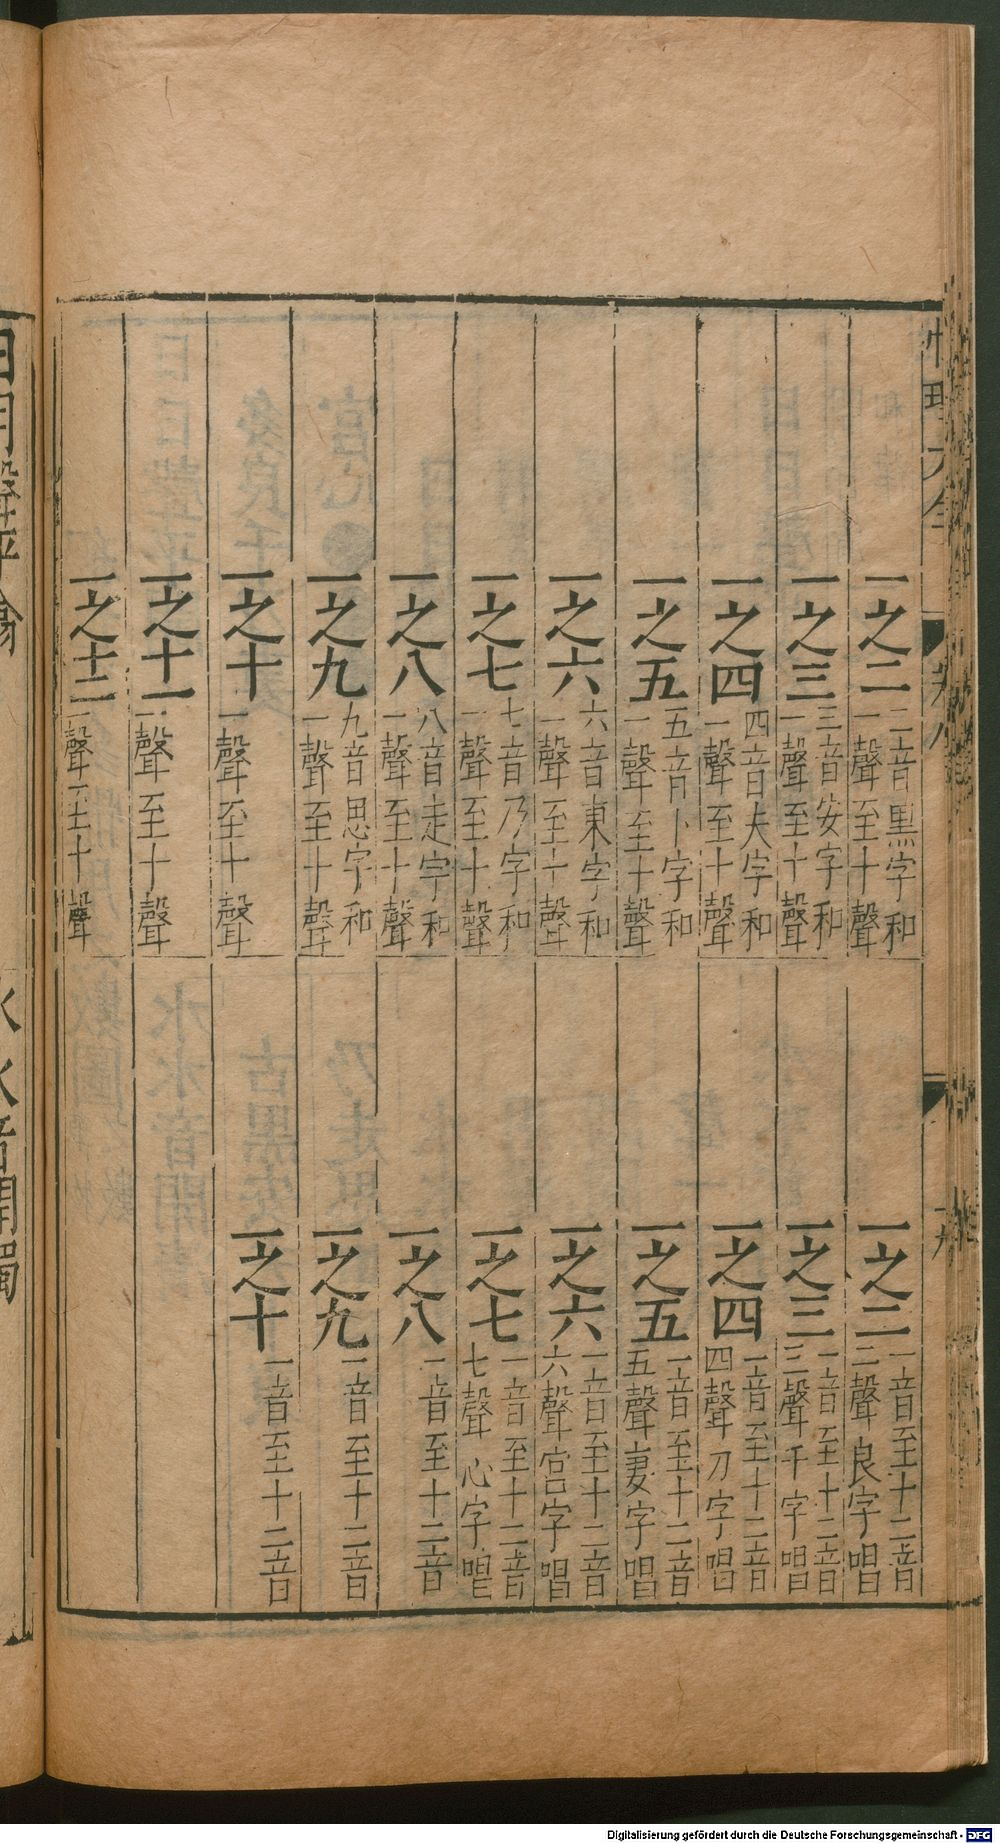 性理大全 卷八
一之二 二音黑字和 一聲至十聲
一之三 三音安字和 一聲至十聲
一之四 四音夫字和 一聲至十聲
一之五 五音卜字和 一聲至十聲
一之六 六音東字和 一聲至十聲
一之七 七音乃字和 一聲至十聲
一之八 八音走字和 一聲至十聲
一之九 九音思字和 一聲至十聲
一之十 一聲至十聲
一之十一 一聲至十聲
一之十二 一聲至十聲
一之二 一音至十二音 二聲良字唱
一之三 一音至十二音 三聲千字唱
一之四 一音至十二音 四聲刀字唱
一之五 一音至十二音 五聲妻字唱
一之六 一音至十二音 六聲宮字唱
一之七 一音至十二音 七聲心字唱
一之八 一音至十二音
一之九 一音至十二音
一之十 一音至十二音
日月聲平翕
水水音開濁
Digitalisierung gefördert durch die Deutsche Forschungsgemeinschaft - DFG